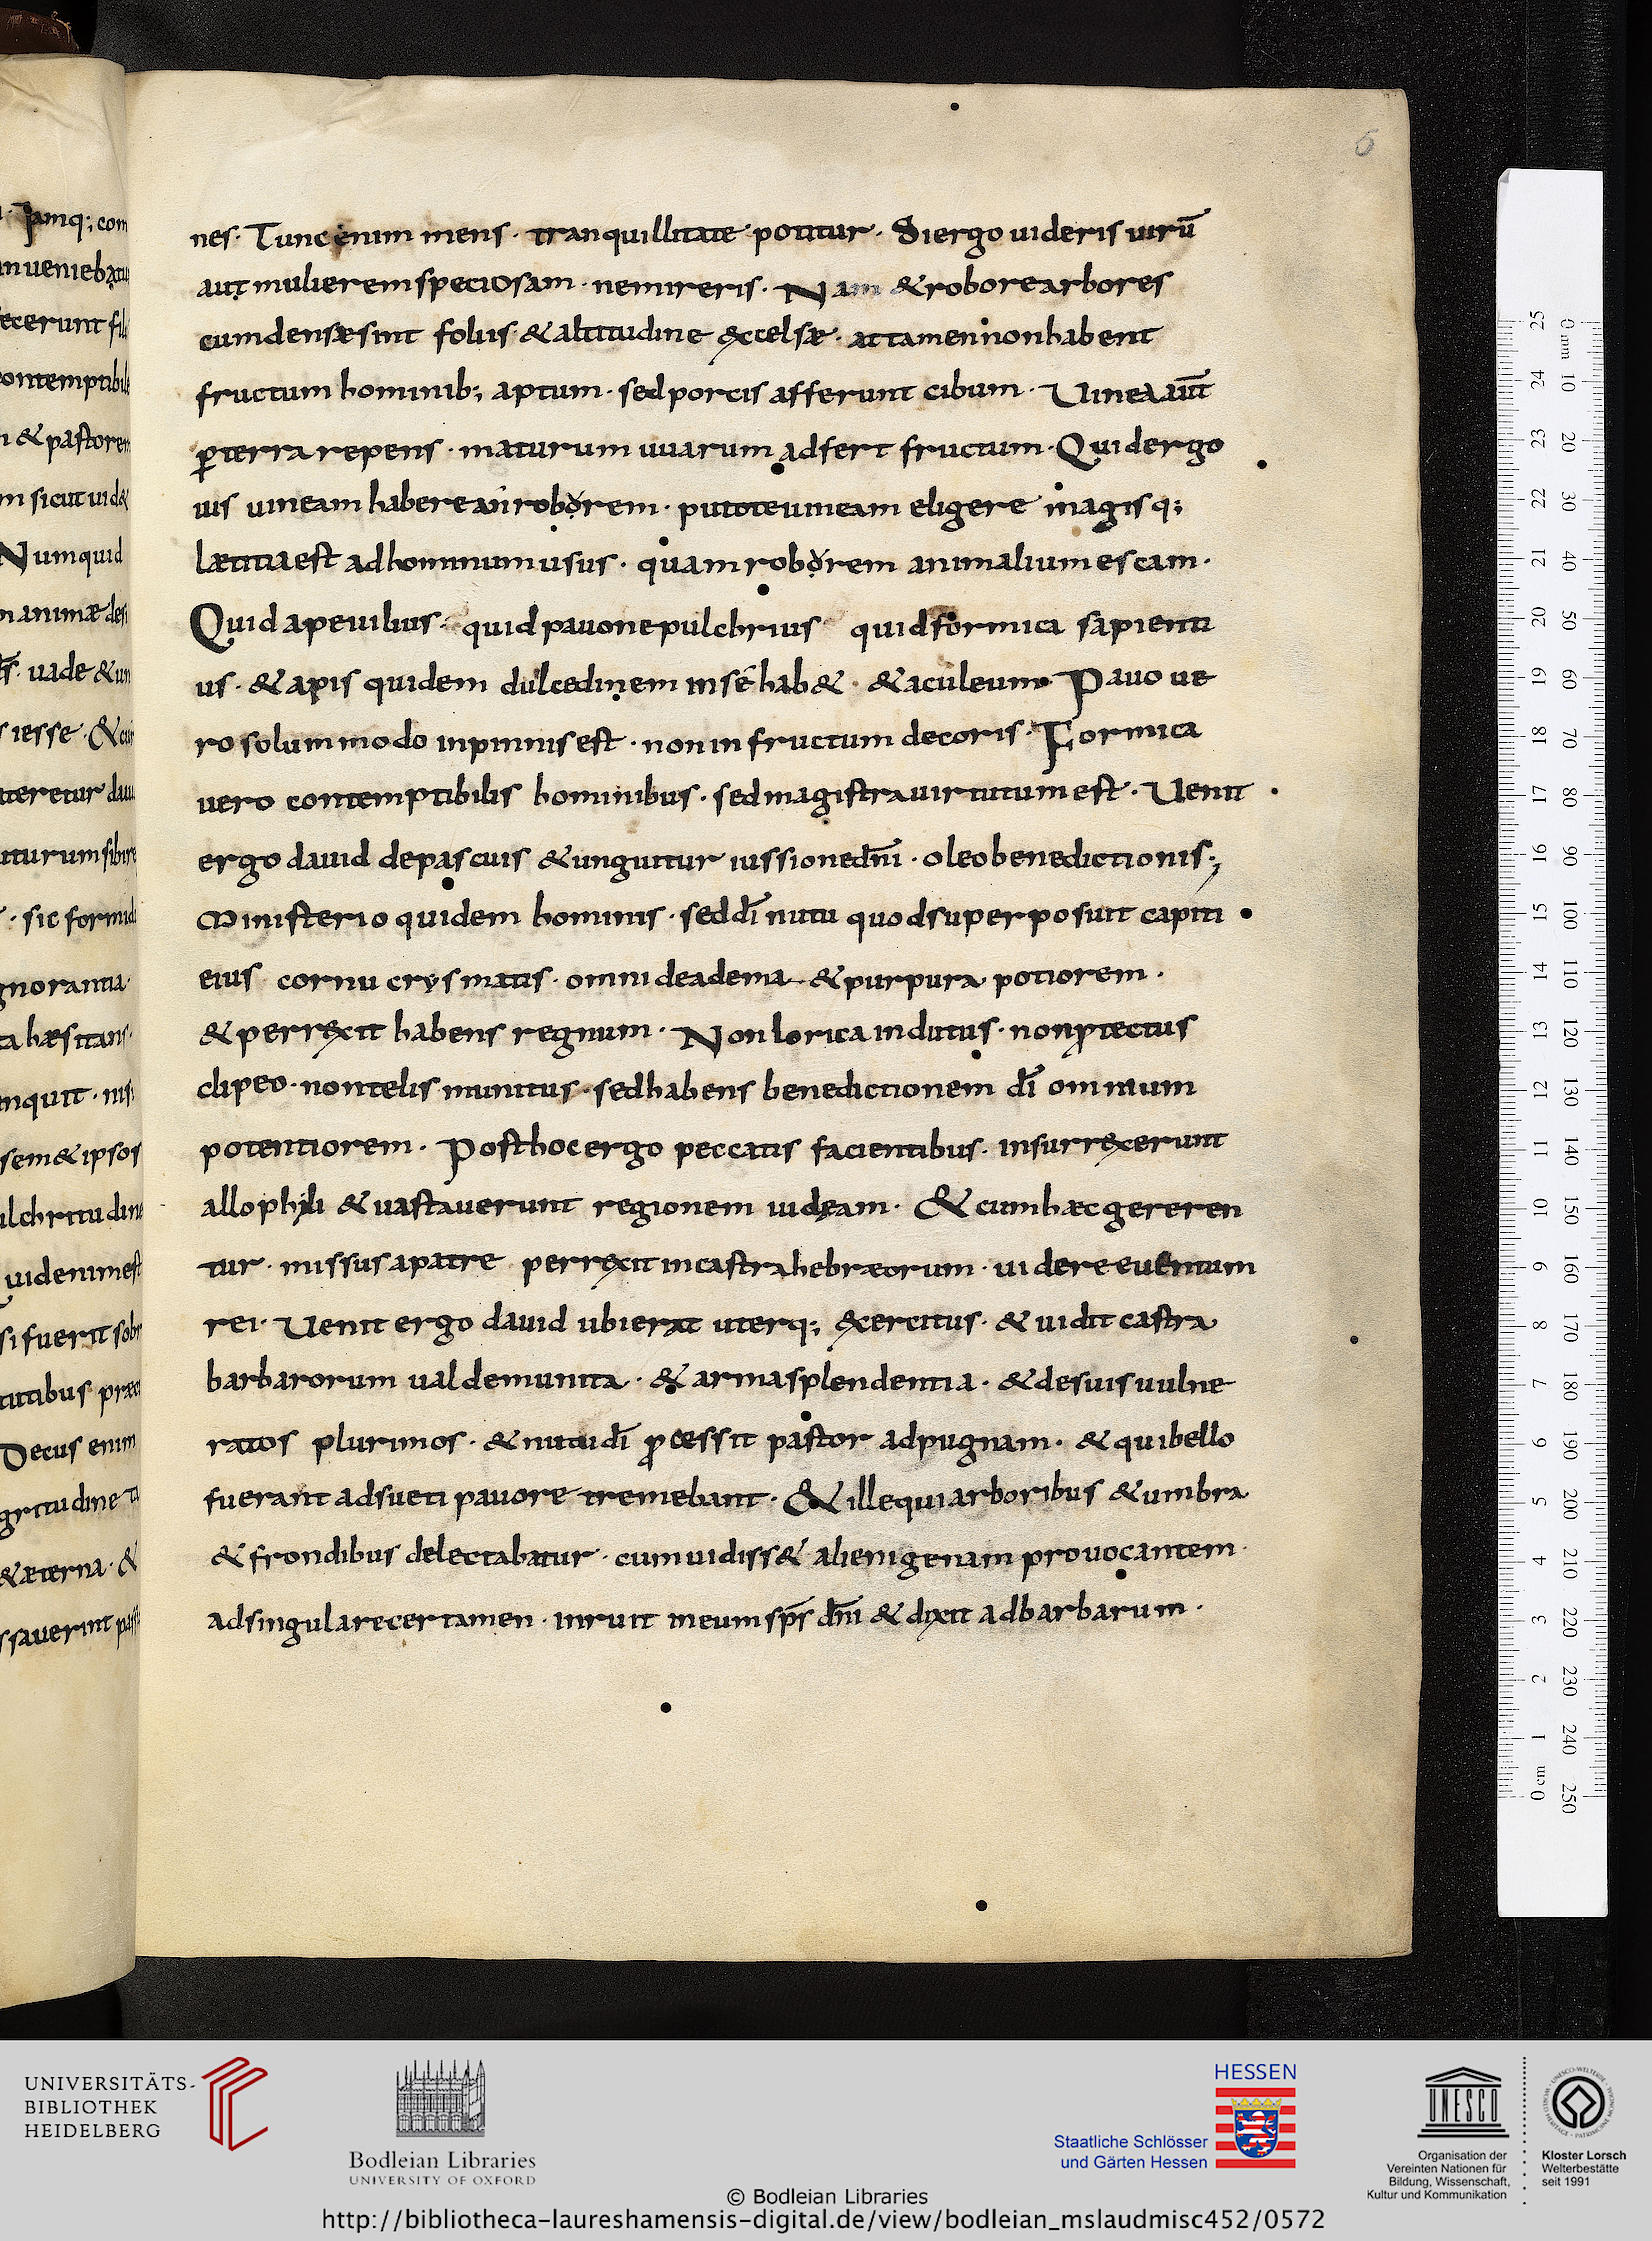 Jamq; com
nueniebatur
ecerunt
contemptibil
& pastorem
m sicut uid&
Numquid
animæ
uade &
iesse · &
teretur
turum
sic formid
gnorantia
hæsitans
nquit · nis
sem & ipsos
ulchritudine
uidenim est
si fuerit
tutibus
Decus enim
gritudine
& æterna · &
ssauerint
6
nes · Tunc enim mens · tranquillitate potitur · Siergo uideris uirū
aut mulierem speciosam · nemireris · Nam & robore arbores
cum densæ sint foliis & altitudine excelsæ · attamen non habent
fructum hominib; aptum · sed porcis afferunt cibum · Uinea aūt
ꝑ terra repens · maturum uuarum adfert fructum · Quid ergo
uis uineam habere an roborem · puto te uineam eligere magisq;
lætitia est ad hominum usus · quam roborem animalium escam ·
Quid ape uilius · quid pauone pulchrius quid formica sapienti
us · & apis quidem dulcedinem in se hab& · & aculeum · Pauo ue
ro solummodo in pinnis est · non in fructum decoris · Formica
uero contemptibilis hominibus · sed magistra uirtutum est · Uenit
ergo dauid de pascuis & unguitur iussione dn̄i · oleo benedictionis ;
Ministerio quidem hominis · sed dī nutu quod superposuit capiti
eius cornu crysmatis · omni deadema & purpura potiorem ·
& perrexit habens regnum · Non lorica indutus · non ꝓtectus
clipeo · non telis munitus · sed habens benedictionem dī omnium
potentiorem · Post hoc ergo peccatis facientibus · insurrexerunt
allophili & uastauerunt regionem iudęam · & cum hæc gereren
tur · missus a patre perrexit in castra hebræorum · uidere euentum
rei · Uenit ergo dauid ubi erat uterq; exercitus · & uidit castra
barbarorum ualde munita · & arma splendentia · & de suis uulne
ratos plurimos · & nutu dī ꝓcessit pastor ad pugnam · & qui bello
fuerant adsueti pauore tremebant · & ille qui arboribus & umbra
& frondibus delectabatur · cum uidiss& alienigenam prouocantem ·
ad singulare certamen · inruit in eum sps̄ dn̄i & dixit ad barbarum ·
25 24 23 22 21 20 19 18 17 16 15 14 13 12 11 10 9 8 7 6 5 4 3 2 1 0 cm
0 mm 10 20 30 40 50 60 70 80 90 100 110 120 130 140 150 160 170 180 190 200 210 220 230 240 250
UNIVERSITÄTS-
BIBLIOTHEK
HEIDELBERG
Bodleian Libraries
UNIVERSITY OF OXFORD
HESSEN
Staatliche Schlösser
und Gärten Hessen
UNESCO
Organisation der
Vereinten Nationen für
Bildung, Wissenschaft,
Kultur und Kommunikation
Kloster Lorsch
Welterbestätte
seit 1991
© Bodleian Libraries
http://bibliotheca-laureshamensis-digital.de/view/bodleian_mslaudmisc452/0572